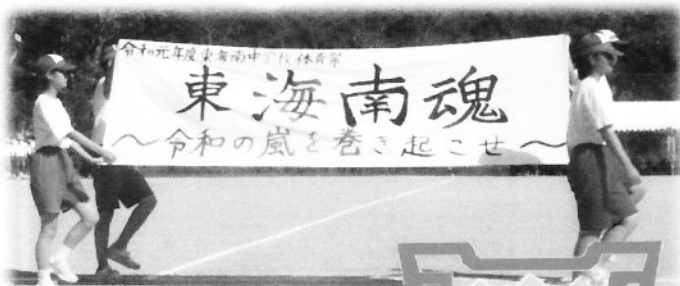 令和元年度東海南中学校体育祭
東海南魂
～令和の嵐を巻き起こせ～